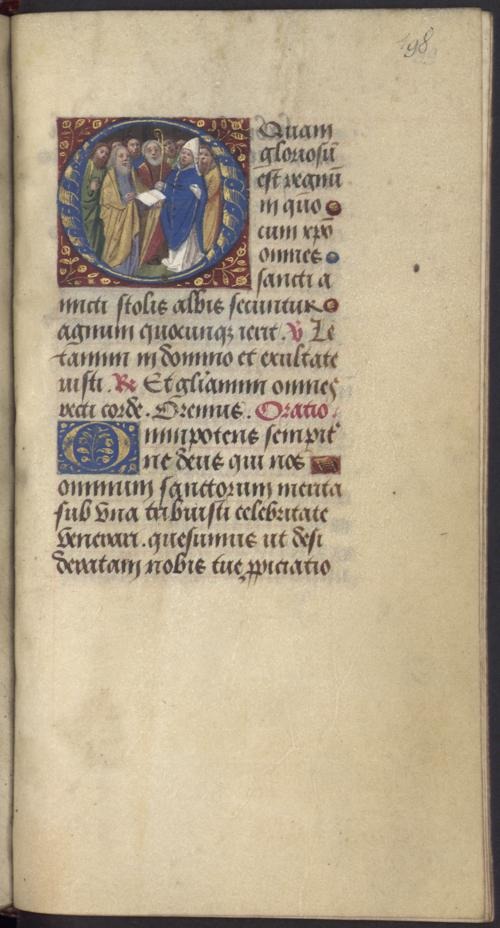 198
O Quam
gloriosū
est regnū
in quo
cum xp̄o
omnes
sancti a
micti stolis albis secuntur
agnum quocunqȝ ierit. ℣ Le
tamini in domino et exultate
iusti. ℟ Et gl̄iamini omnes
recti corde. Oremus. Oratio.
Omnipotens sempit͛
ne deus qui nos
omnium sanctorum merita
sub vna tribuisti celebritate
venerari. quesumus ut desi
deratam nobis tue ꝓpiciatio